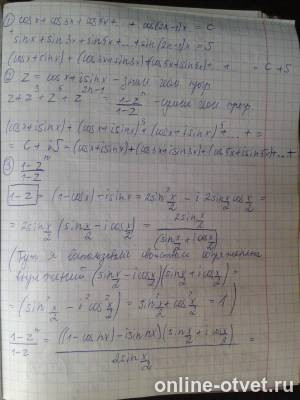 ① cosx + cos3x + cos5x + ... + cos(2n-1)x = C
sinx + sin3x + sin5x + ... + sin(2n-1)x = S
(cosx + isinx) + (cos3x + isin3x) + (cos5x + isin5x) + ... = C + iS
② z = cosx + isinx - знам. геом. прогр.
z + z³ + z⁵ + z^(2n-1) = (1-z^n)/(1-z) - сумма геом. прогр.
(cosx + isinx) + (cosx + isinx)³ + (cosx + isinx)⁵ + ... =
= C + iS = (cosx + isinx) + (cos3x + isin3x) + (cos5x + isin5x) + ...
③ (1-z^n)/(1-z)
1-z = (1-cosx) - isinx = 2sin²x/2 - i 2sin x/2 cos x/2 =
= 2sin x/2 (sin x/2 - i cos x/2) = 2sin x/2 / (sin x/2 + i cos x/2)
(Тут я
выражений (sin x/2 - i cos x/2)(sin x/2 + i cos x/2) =
= (sin² x/2 - i² cos² x/2) = sin² x/2 + cos² x/2 = 1)
(1-z^n)/(1-z) = ((1-cosnx) - isinnx)(sin x/2 + i cos x/2) / 2sin x/2 =
online-otvet.ru